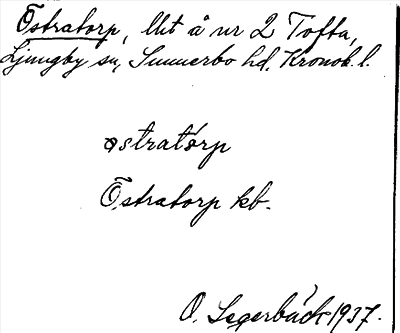 Östratorp, lht å nr 2 Tofta,
Ljungby sn, Sunnerbo hd. Kronob. l.
östratorp
Östratorp kb.
O. Segerbäck 1937.